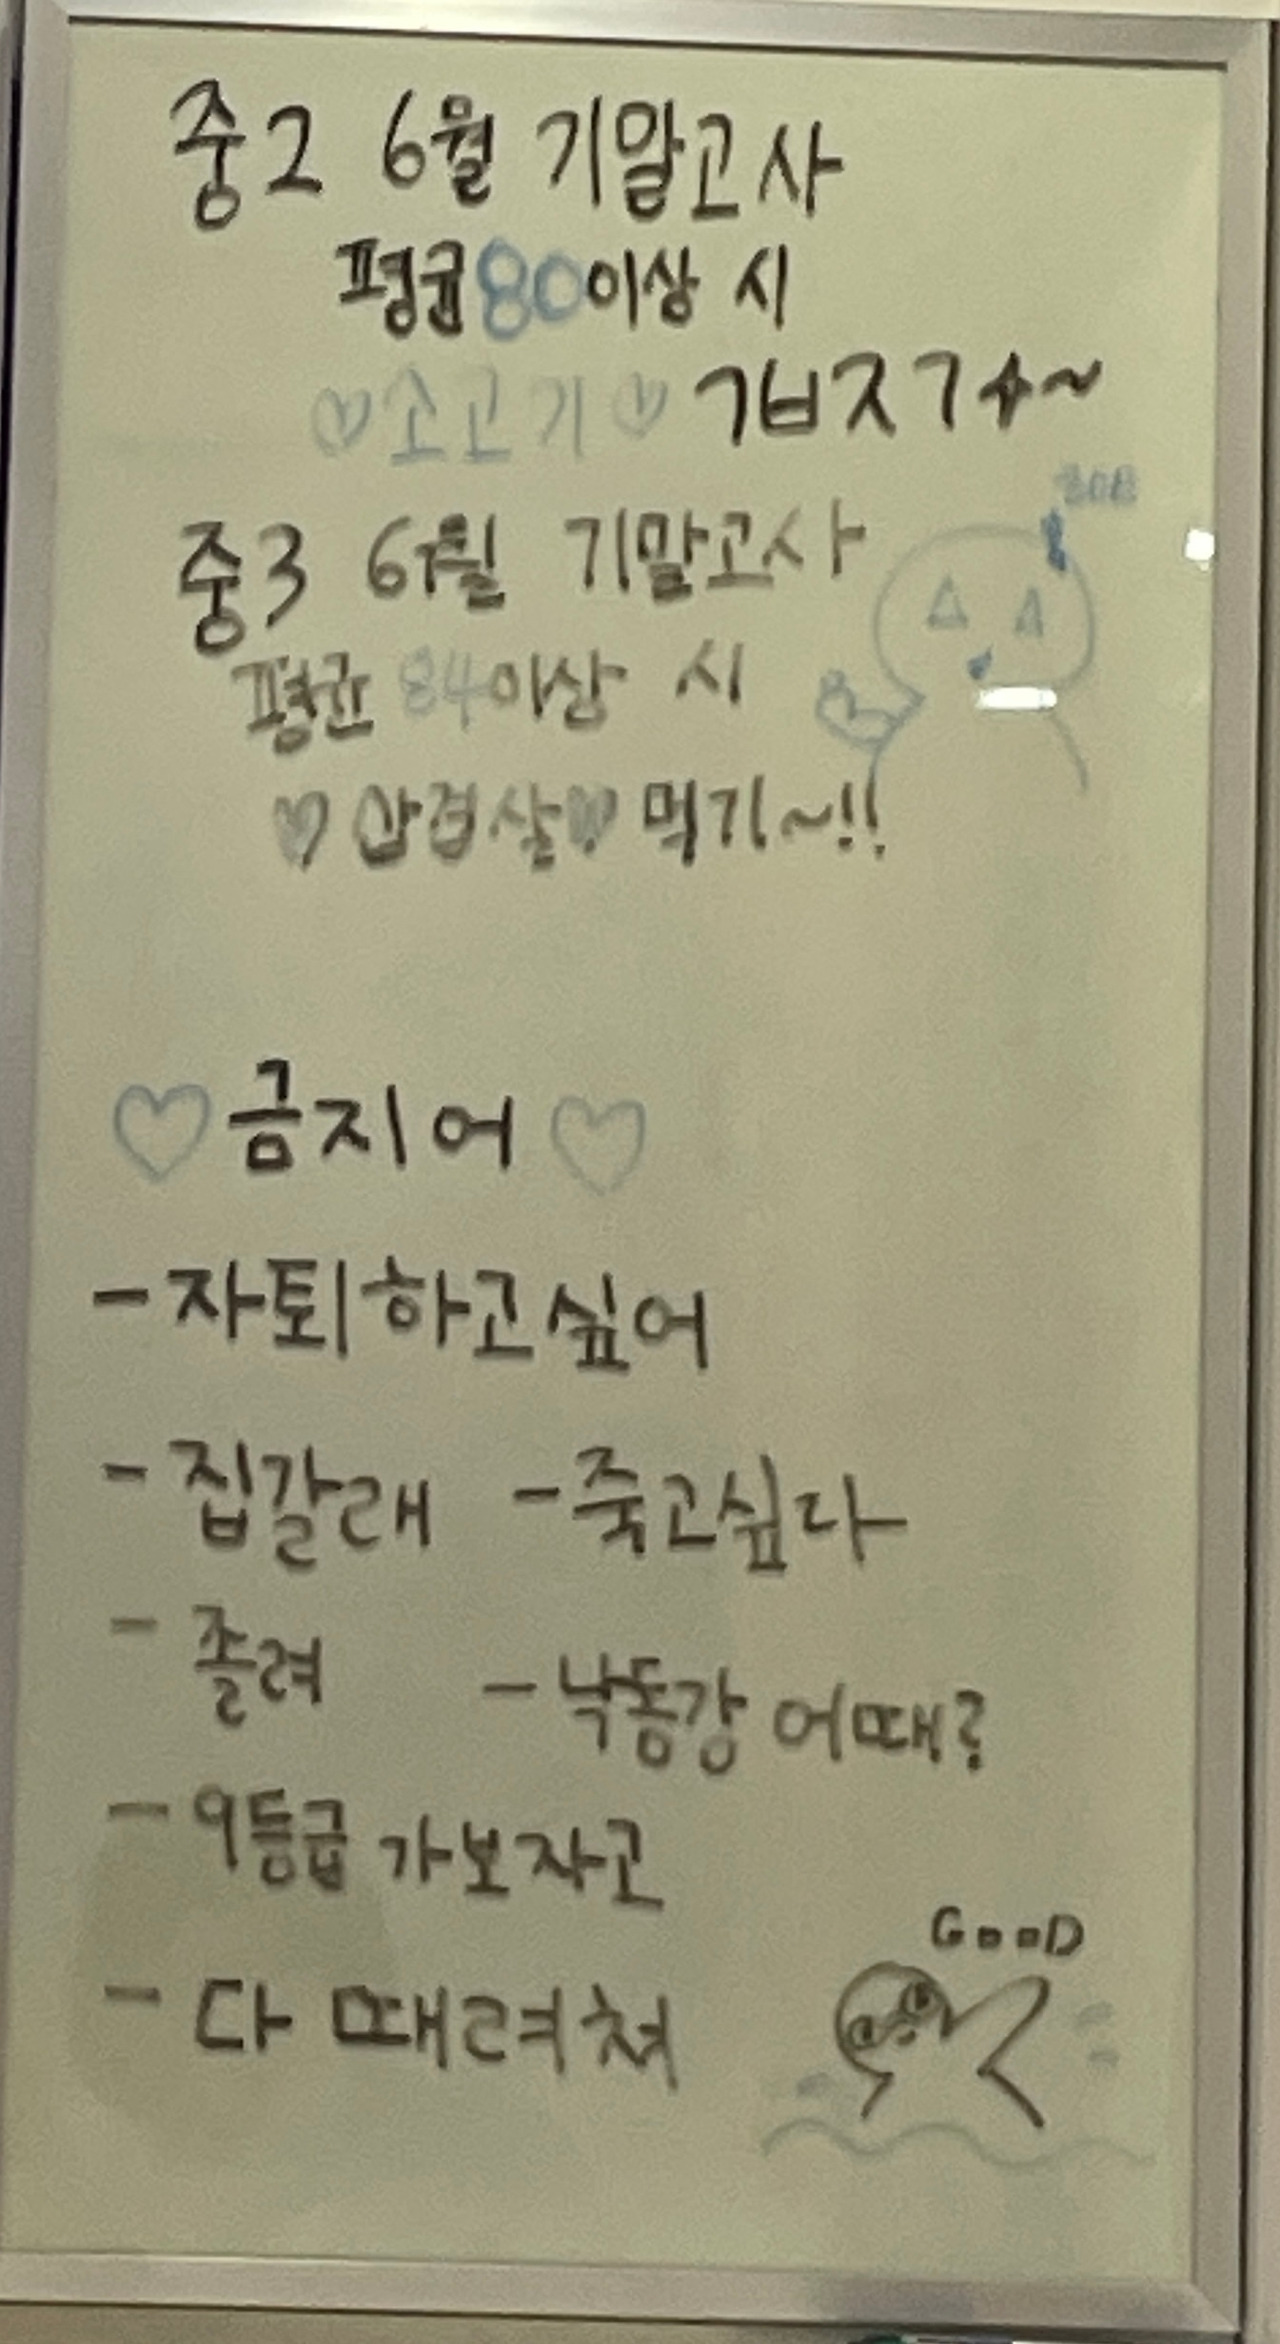 중2 6월 기말고사
평균80이상 시
♡소고기♡ ㄱㅂㅈㄱ~
중3 6월 기말고사
평균 84이상 시
♡삼겹살♡ 먹기~!!
♡금지어♡
-자퇴하고싶어
-집갈래 -죽고싶다
-졸려 -낙동강 어때?
-9등급 가보자고
-다 때려쳐
GOOD